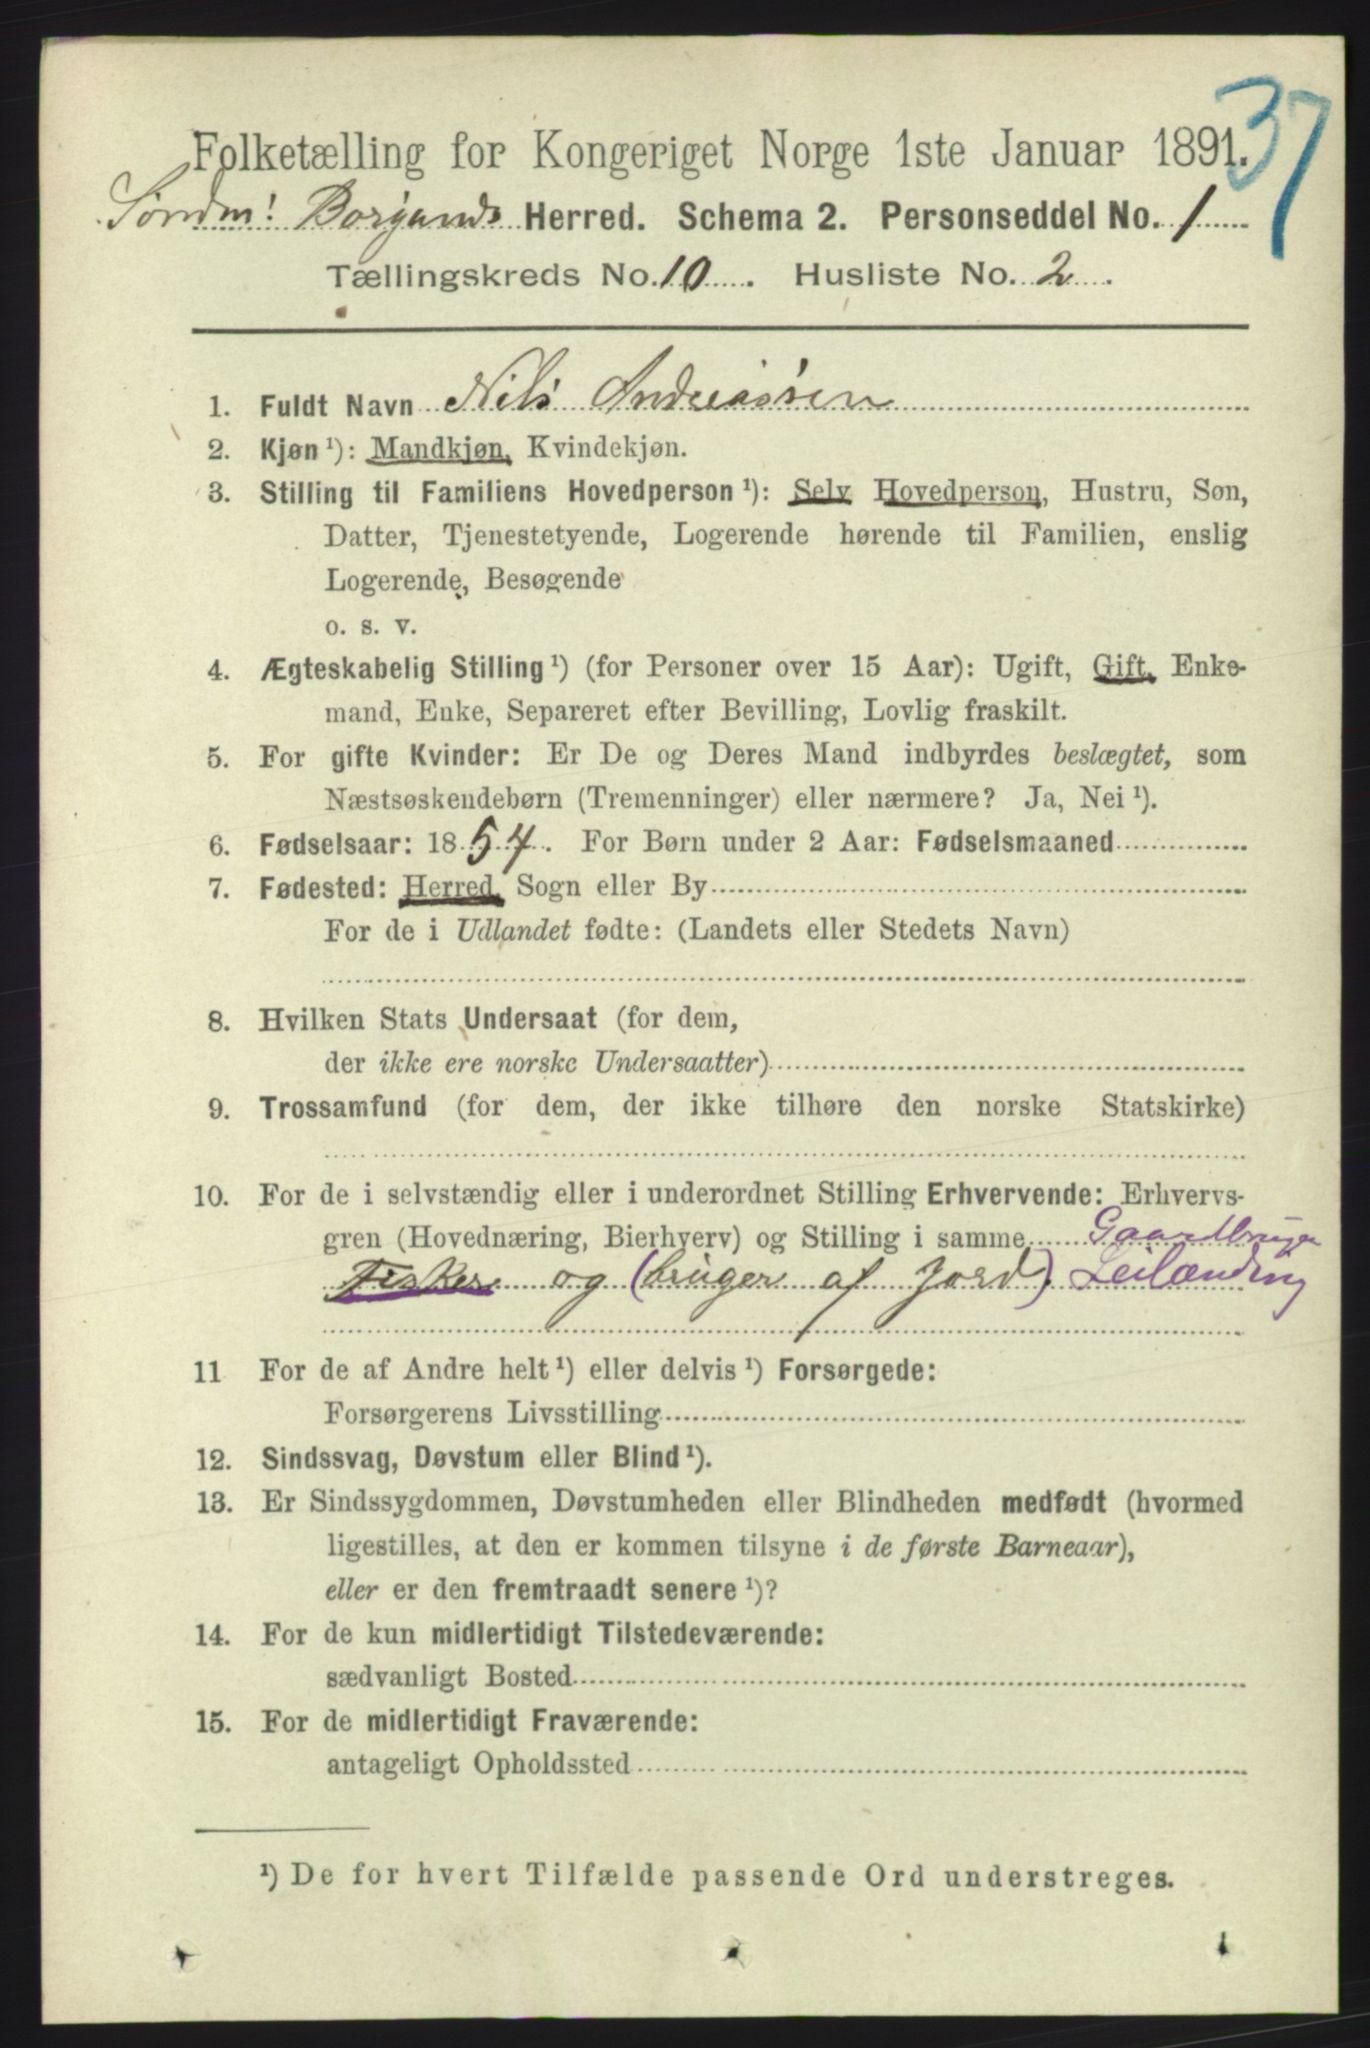 37
Folketælling for Kongeriget Norge 1ste Januar 1891.
Søndm! Borgunds Herred. Schema 2. Personseddel No. 1
Tællingskreds No. 10. Husliste No. 2.
1. Fuldt Navn Nils Andreassen
2. Kjøn ¹): Mandkjøn, Kvindekjøn.
3. Stilling til Familiens Hovedperson ¹): Selv Hovedperson, Hustru, Søn,
Datter, Tjenestetyende, Logerende hørende til Familien, enslig
Logerende, Besøgende
o. s. v.
4. Ægteskabelig Stilling ¹) (for Personer over 15 Aar): Ugift, Gift, Enke-
mand, Enke, Separeret efter Bevilling, Lovlig fraskilt.
5. For gifte Kvinder: Er De og Deres Mand indbyrdes beslægtet, som
Næstsøskendebørn (Tremenninger) eller nærmere? Ja, Nei ¹).
6. Fødselsaar: 1854. For Børn under 2 Aar: Fødselsmaaned
7. Fødested: Herred, Sogn eller By
For de i Udlandet fødte: (Landets eller Stedets Navn)
8. Hvilken Stats Undersaat (for dem,
der ikke ere norske Undersaatter)
9. Trossamfund (for dem, der ikke tilhøre den norske Statskirke)
10. For de i selvstændig eller i underordnet Stilling Erhvervende: Erhvervs-
gren (Hovednæring, Bierhverv) og Stilling i samme Gaardbruger
Fisker og (bruger af Jord) Leilænding
11 For de af Andre helt ¹) eller delvis ¹) Forsørgede:
Forsørgerens Livsstilling
12. Sindssvag, Døvstum eller Blind ¹).
13. Er Sindssygdommen, Døvstumheden eller Blindheden medfødt (hvormed
ligestilles, at den er kommen tilsyne i de første Barneaar),
eller er den fremtraadt senere ¹)?
14. For de kun midlertidigt Tilstedeværende:
sædvanligt Bosted
15. For de midlertidigt Fraværende:
antageligt Opholdssted
¹) De for hvert Tilfælde passende Ord understreges.